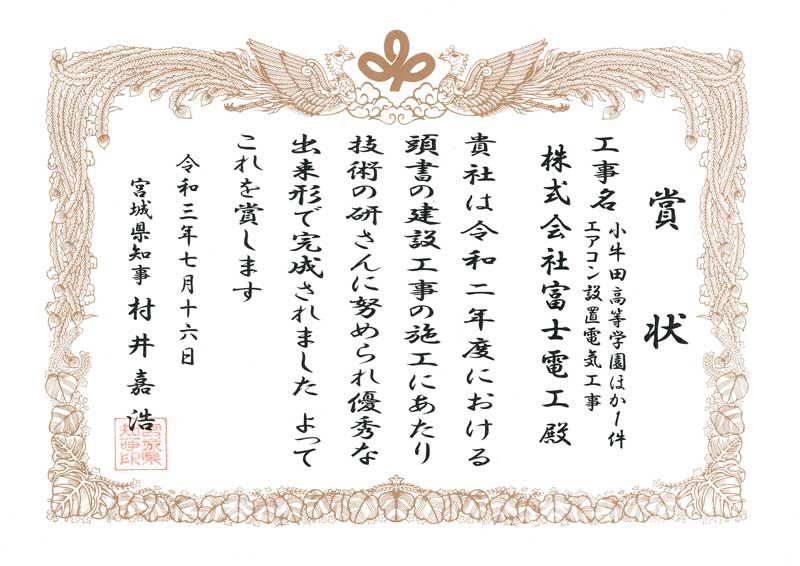 賞状
工事名
小牛田高等学園ほか1件
エアコン設置電気工事
株式会社富士電工殿
貴社は令和二年度における
頭書の建設工事の施工にあたり
技術の研さんに努められ優秀な
出来形で完成されました よって
これを賞します
令和三年七月十六日
宮城県知事 村井嘉浩
宮城県
知事印